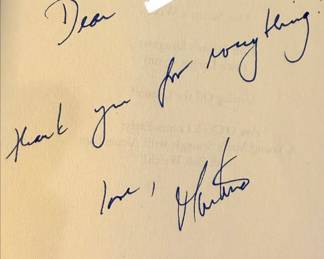 Dear
thank you for everything!
love,